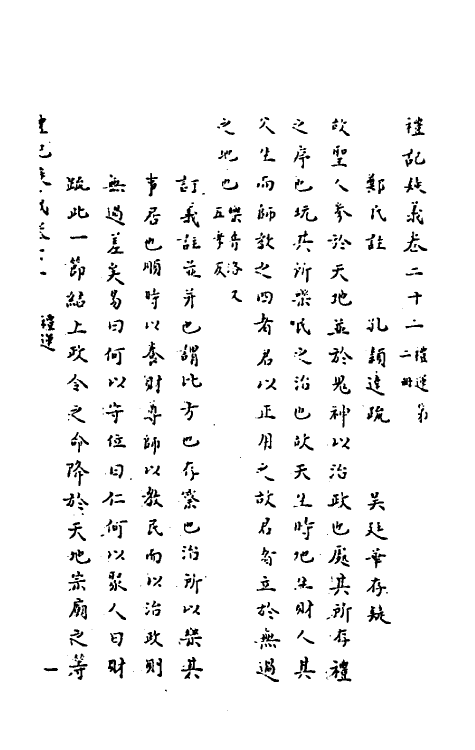 禮記疑義卷二十二 禮運第二冊
鄭氏註 孔穎達疏 吳廷華存疑
故聖人參於天地並於鬼神以治政也處其所存禮
之序也玩其所樂民之治也故天生時地生財人其
父生而師教之四者君以正用之故君者立於無過
之地也 樂音洛又五孝反
訂義註並并也謂比方也存察也治所以樂其
事居也順時以養財尊師以教民而以治政則
無過差矣易曰何以守位曰仁何以聚人曰財
疏此一節結上政令之命降於天地宗廟之等
禮記疑義卷二十二 禮運 一